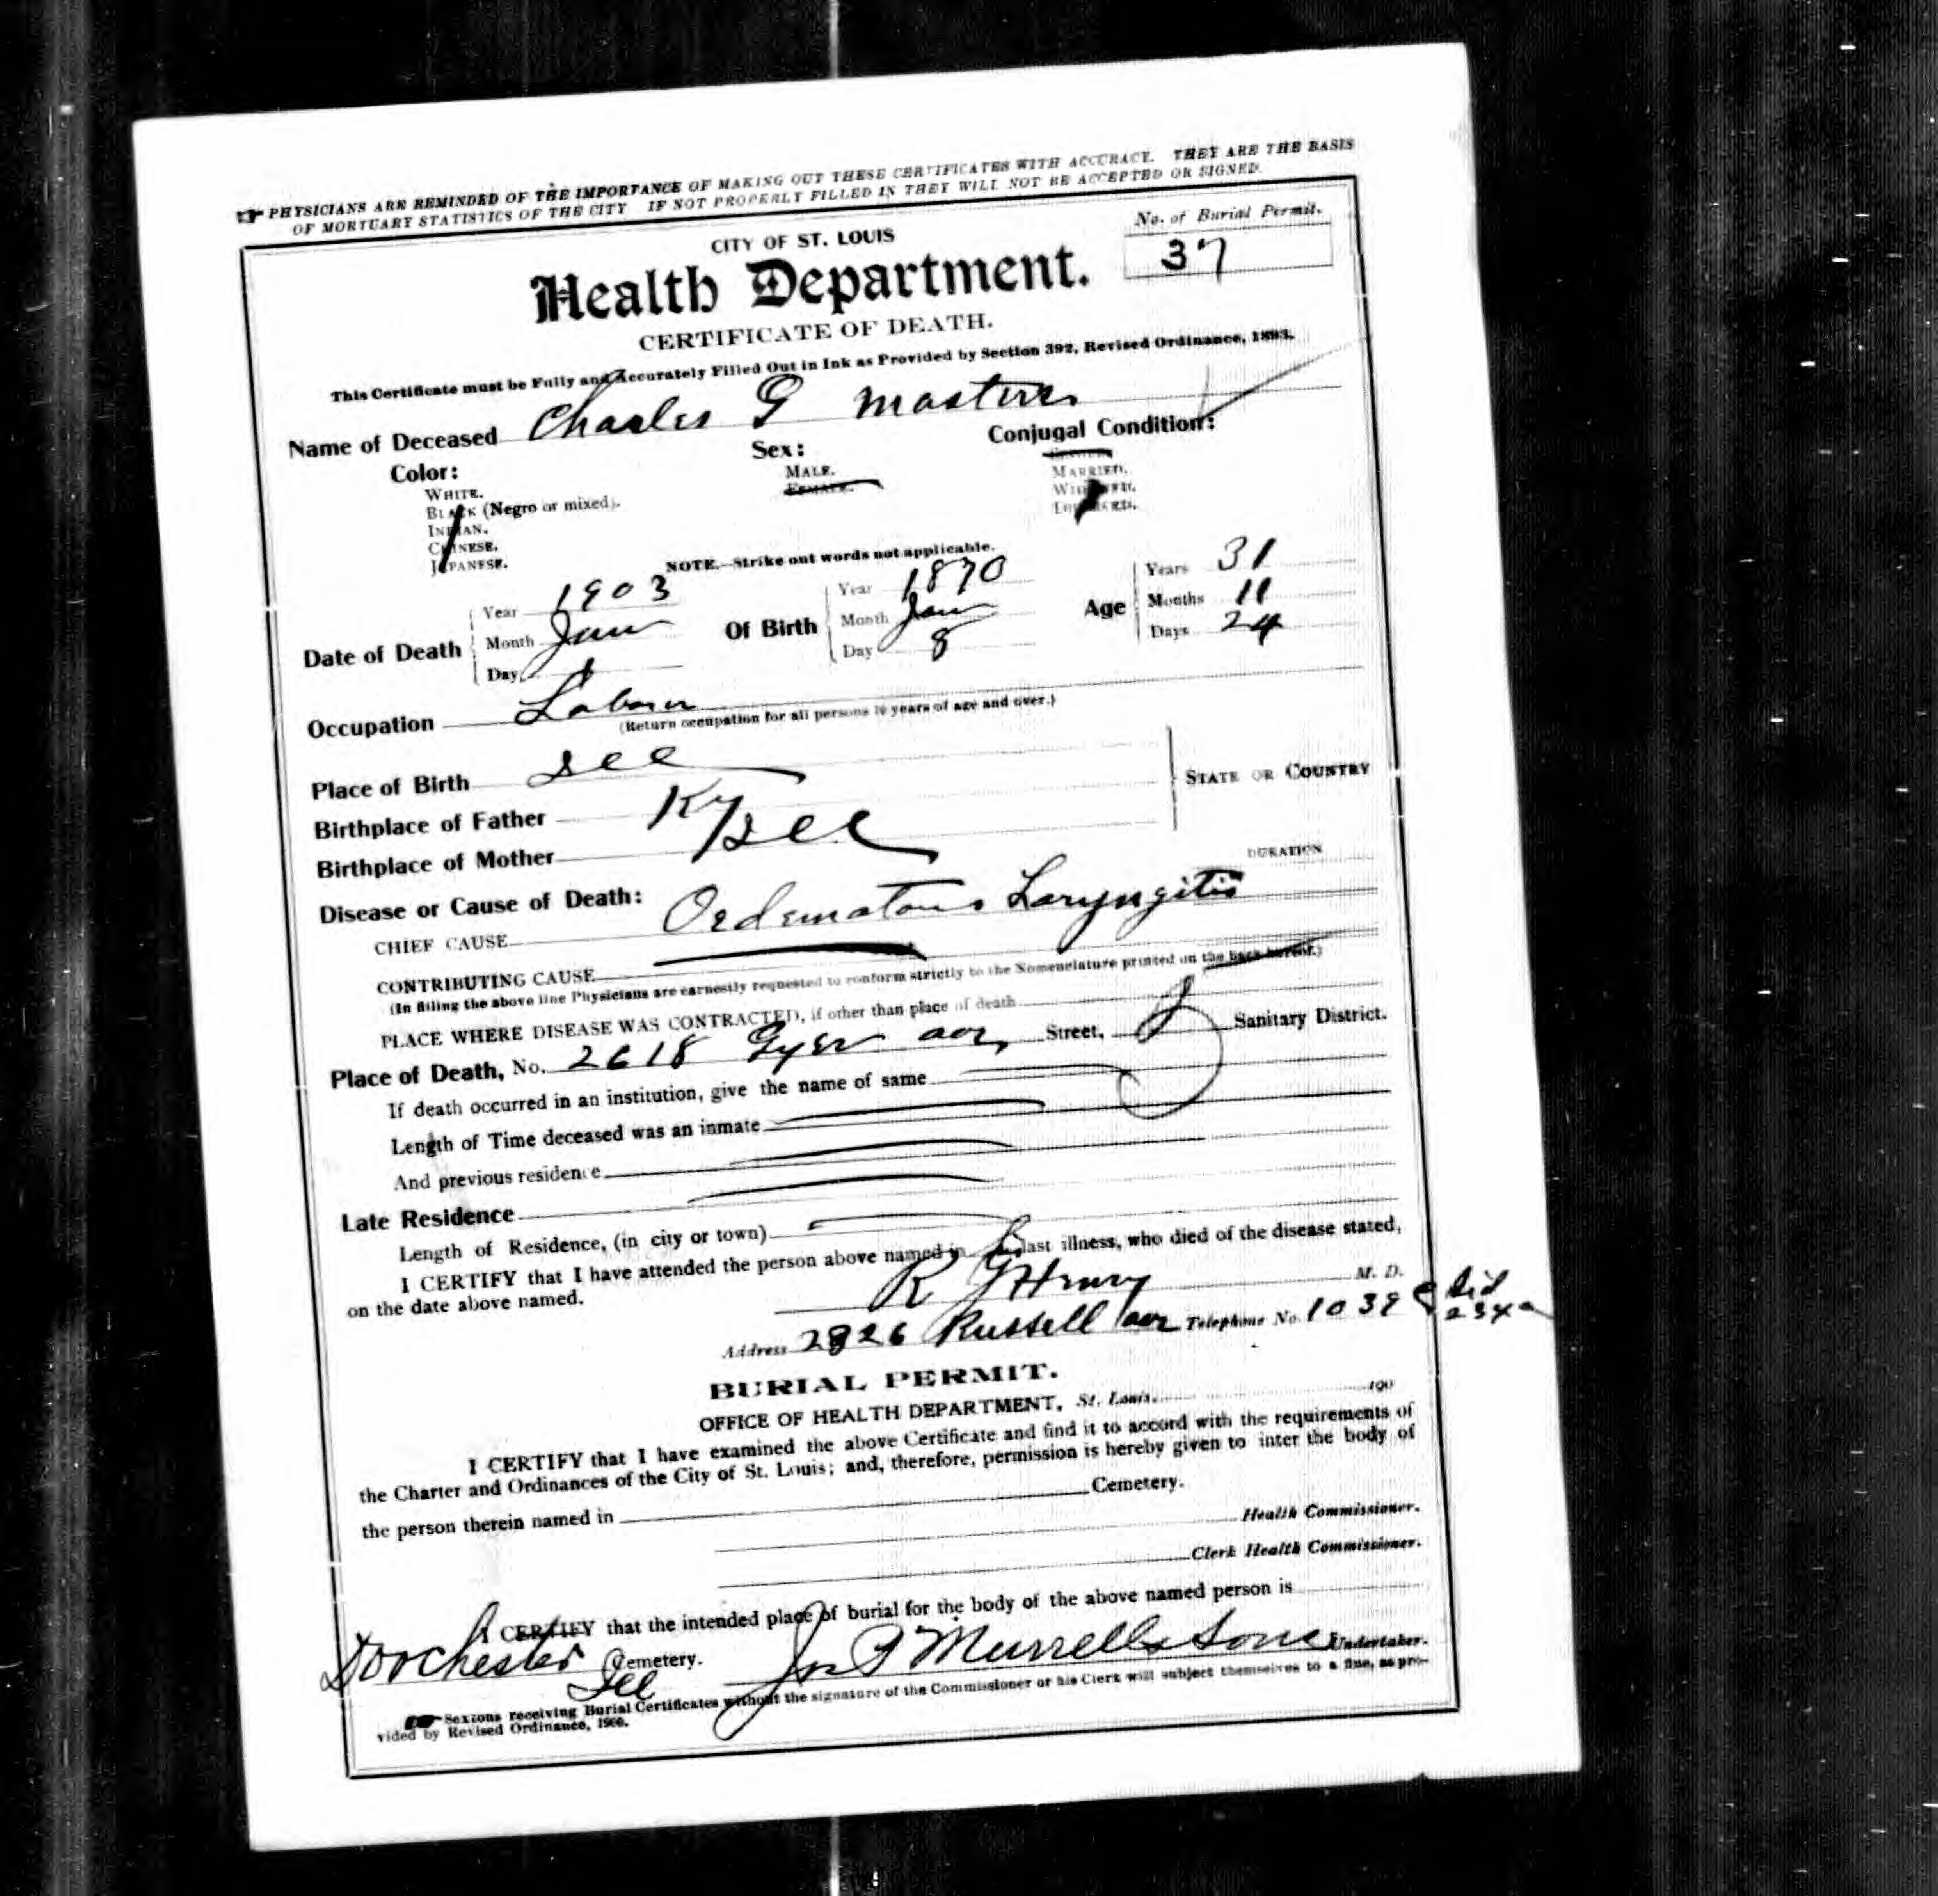 PHYSICIANS ARE REMINDED OF THE IMPORTANCE OF MAKING OUT THESE CERTIFICATES WITH ACCURACY. THEY ARE THE BASIS
OF MORTUARY STATISTICS OF THE CITY IF NOT PROPERLY FILLED IN THEY WILL NOT BE ACCEPTED OR SIGNED.
No. of Burial Permit.
37
CITY OF ST. LOUIS
Health Department.
CERTIFICATE OF DEATH.
This Certificate must be Fully and Accurately Filled Out in Ink as Provided by Section 392, Revised Ordinance, 1893.
Name of Deceased Charles G Masters
Color: Sex: Conjugal Condition:
WHITE. MALE. MARRIED.
BLACK (Negro or mixed). FEMALE. WIDOWED.
INDIAN. DIVORCED.
CHINESE.
JAPANESE.
NOTE.—Strike out words not applicable.
Date of Death Year 1903 Of Birth Year 1870 Age Years 31
Month Jan Month Jan Months 11
Day 1 Day 8 Days 24
Occupation Laborer
(Return occupation for all persons 10 years of age and over.)
Place of Birth Ill
Birthplace of Father Ky STATE OR COUNTRY
Birthplace of Mother Ill
Disease or Cause of Death: DURATION
CHIEF CAUSE Oedematous Laryngitis
CONTRIBUTING CAUSE
(In filling the above line Physicians are earnestly requested to conform strictly to the Nomenclature printed on the back hereof.)
PLACE WHERE DISEASE WAS CONTRACTED, if other than place of death
Place of Death, No. 2618 Gyer ave Street, Sanitary District.
If death occurred in an institution, give the name of same
Length of Time deceased was an inmate
And previous residence
Late Residence
Length of Residence, (in city or town)
I CERTIFY that I have attended the person above named in last illness, who died of the disease stated,
on the date above named.
R G Henry M. D.
Address 2826 Russell ave Telephone No. 1039
BURIAL PERMIT.
OFFICE OF HEALTH DEPARTMENT, St. Louis, 190
I CERTIFY that I have examined the above Certificate and find it to accord with the requirements of
the Charter and Ordinances of the City of St. Louis; and, therefore, permission is hereby given to inter the body of
the person therein named in Cemetery.
Health Commissioner.
Clerk Health Commissioner.
I CERTIFY that the intended place of burial for the body of the above named person is
Dorchester Cemetery. Jno P Murrell & Sons Undertaker.
Ill
Sextons receiving Burial Certificates without the signature of the Commissioner or his Clerk will subject themselves to a fine, as pro-
vided by Revised Ordinance, 1900.